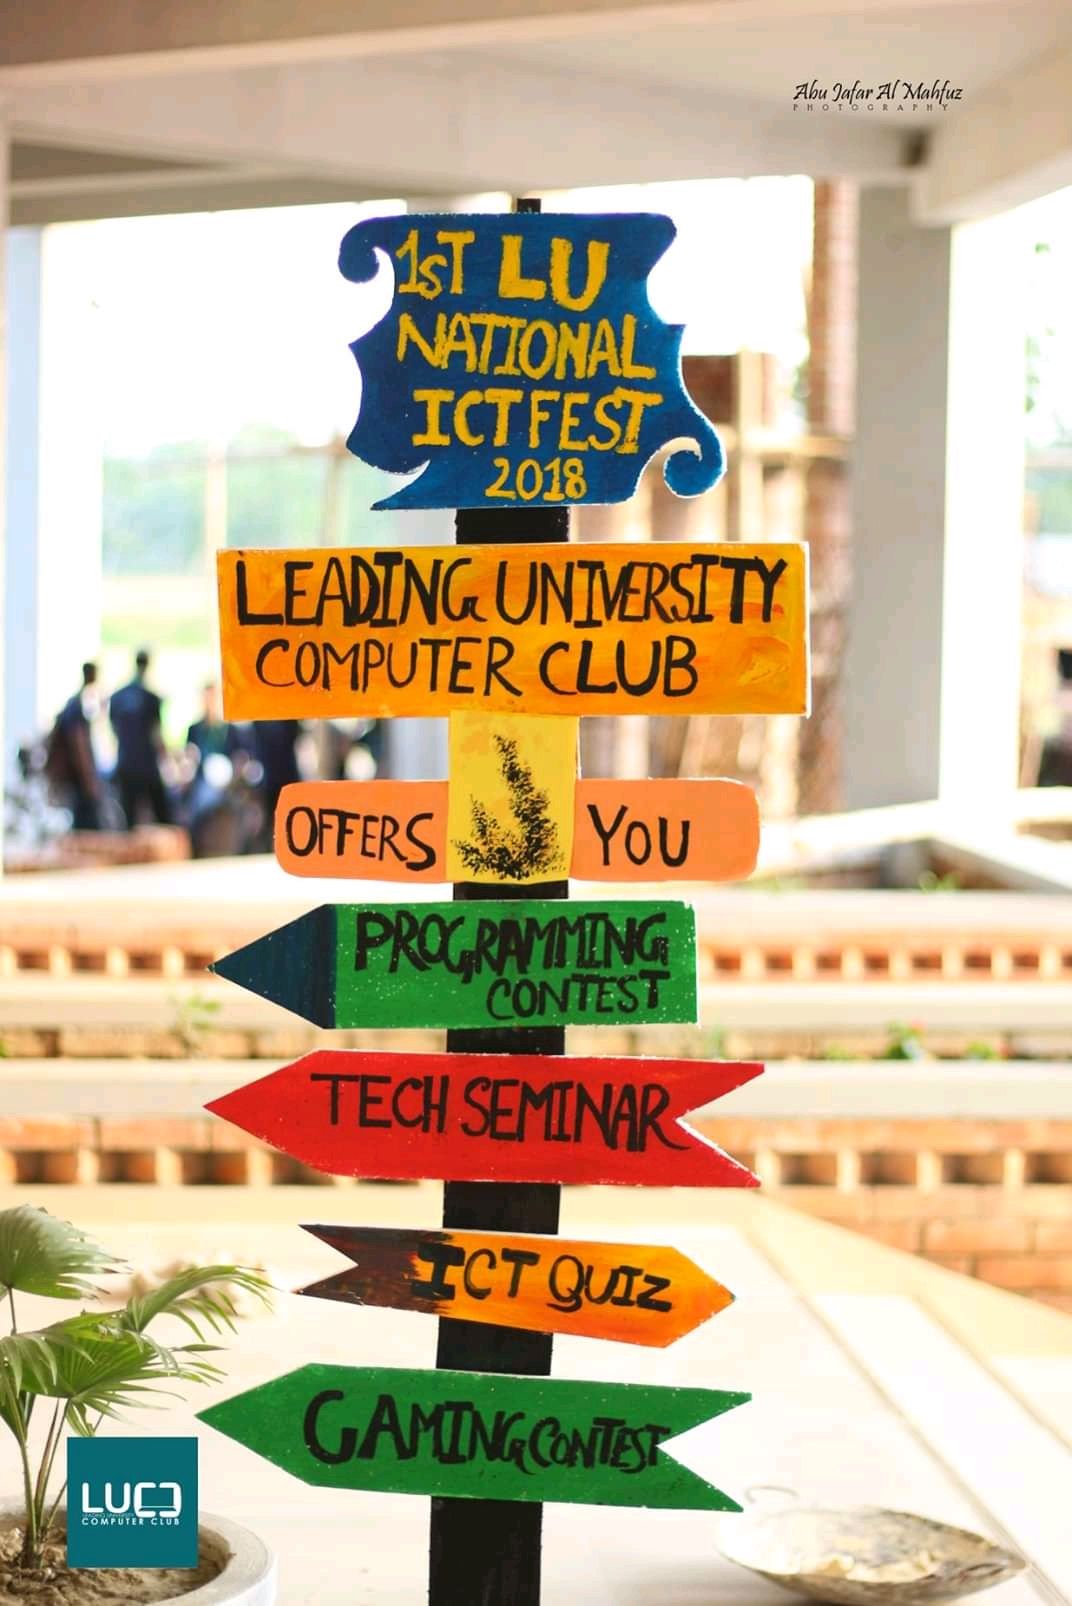 Abu Jafar Al Mahfuz
PHOTOGRAPHY
1ST LU
NATIONAL
ICT FEST
2018
LEADING UNIVERSITY
COMPUTER CLUB
OFFERS YOU
PROGRAMMING
CONTEST
TECH SEMINAR
ICT QUIZ
GAMING CONTEST
LUCC
LEADING UNIVERSITY
COMPUTER CLUB